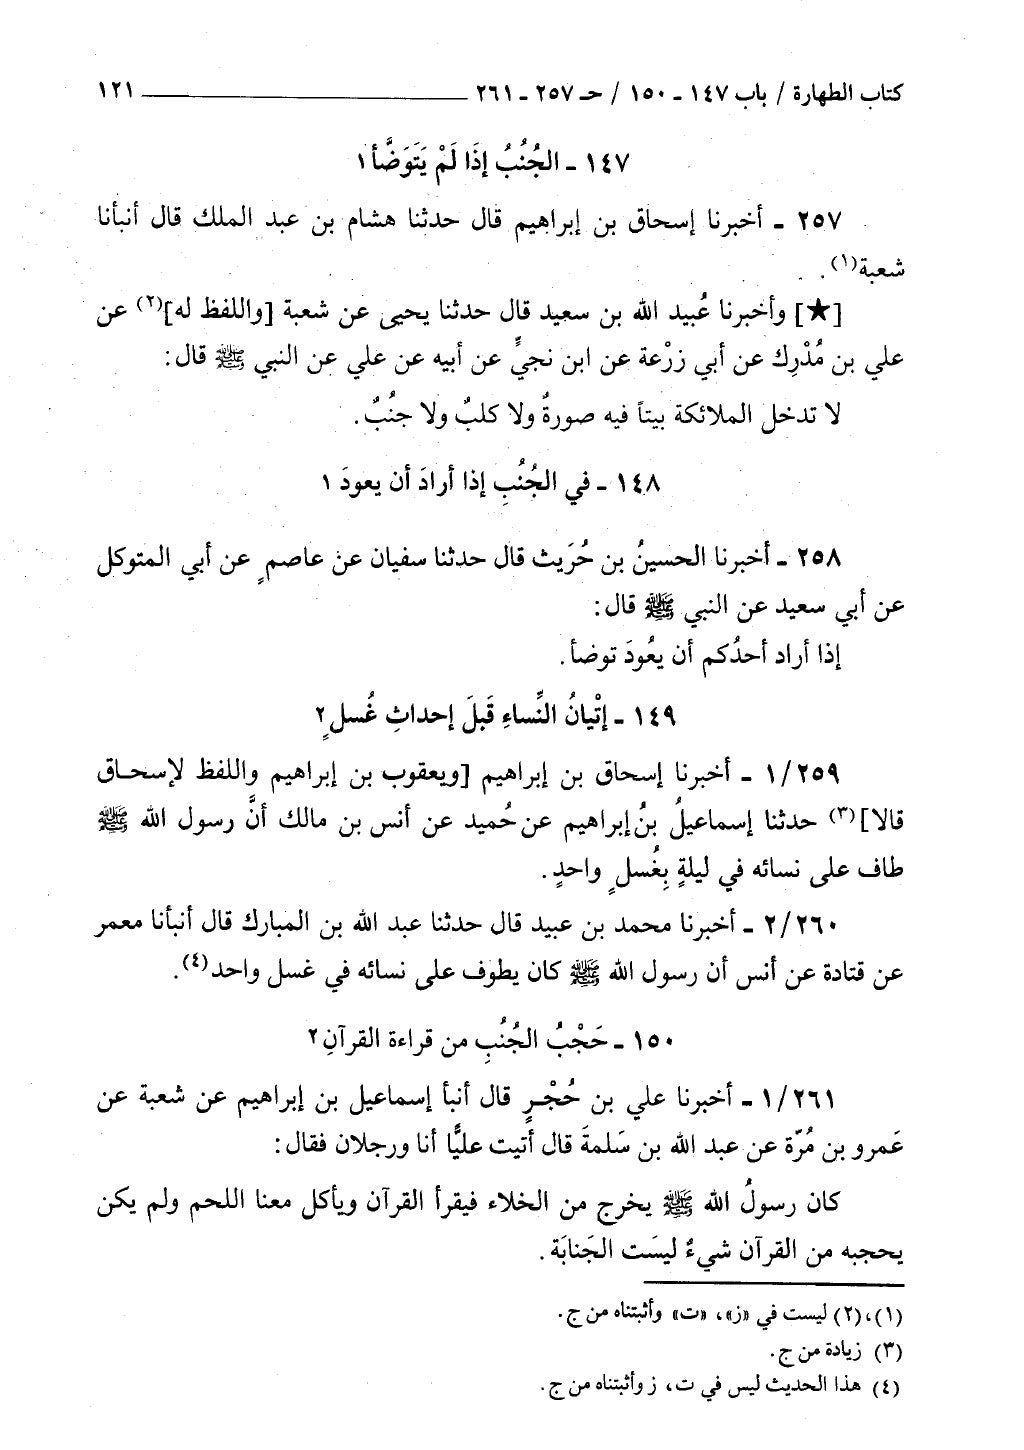 كتاب الطهارة / باب ١٤٧ ـ ١٥٠ / حـ ٢٥٧ ـ ٢٦١ ١٢١
١٤٧ ـ الجُنُبُ إذَا لَمْ يَتَوَضَّأ ١
٢٥٧ ـ أخبرنا إسحاق بن إبراهيم قال حدثنا هشام بن عبد الملك قال أنبأنا
شعبة(١).
[★] وأخبرنا عُبيد الله بن سعيد قال حدثنا يحيى عن شعبة [واللفظ له](٢) عن
علي بن مُدْرِك عن أبي زرْعة عن ابن نجيٍّ عن أبيه عن علي عن النبي ﷺ قال:
لا تدخل الملائكة بيتاً فيه صورةٌ ولا كلبٌ ولا جنُبٌ.
١٤٨ ـ في الجُنُبِ إذا أرادَ أن يعودَ ١
٢٥٨ ـ أخبرنا الحسينُ بن حُرَيث قال حدثنا سفيان عن عاصمٍ عن أبي المتوكل
عن أبي سعيد عن النبي ﷺ قال:
إذا أراد أحدُكم أن يعُودَ توضأ.
١٤٩ ـ إتْيانُ النِّساءِ قَبلَ إحداثِ غُسلٍ ٢
١/٢٥٩ ـ أخبرنا إسحاق بن إبراهيم [ويعقوب بن إبراهيم واللفظ لإسحـاق
قالا](٣) حدثنا إسماعيلُ بنُ إبراهيم عن حُميد عن أنس بن مالك أنَّ رسول الله ﷺ
طاف على نسائه في ليلةٍ بِغُسلٍ واحدٍ.
٢/٢٦٠ ـ أخبرنا محمد بن عبيد قال حدثنا عبد الله بن المبارك قال أنبأنا معمر
عن قتادة عن أنس أن رسول الله ﷺ كان يطوف على نسائه في غسل واحد(٤).
١٥٠ ـ حَجْبُ الجُنُبِ من قراءة القرآنِ ٢
١/٢٦١ ـ أخبرنا علي بن حُجْـرٍ قال أنبأ إسماعيل بن إبراهيم عن شعبة عن
عَمرو بن مُرّة عن عبد الله بن سَلمةَ قال أتيت عليًّا أنا ورجلان فقال:
كان رسولُ الله ﷺ يخرج من الخلاء فيقرأ القرآن ويأكل معنا اللحم ولم يكن
يحجبه من القرآن شيءٌ ليسَت الجَنابَة.
(١)،(٢) ليست في «ز»، «ت» وأثبتناه من ج.
(٣) زيادة من ج.
(٤) هذا الحديث ليس في ت، ز وأثبتناه من ج.